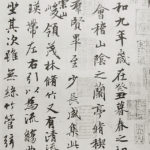 和九年歲在癸丑暮春初
會稽山陰之蘭亭脩稧
羣賢畢至少長咸集此
崇山
峻領茂林脩竹又有清
暎帶左右引以為流觴
坐其次雖無絲竹管絃